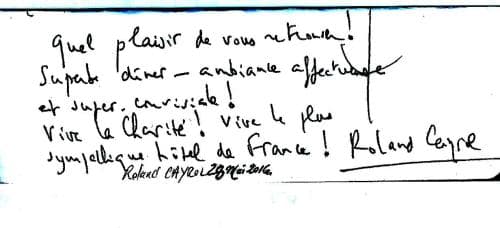 Quel plaisir de vous retrouver!
Superbe dîner - ambiance affectueuse
et super-conviviale!
Vive la Charité! Vive le plus
sympathique hôtel de France! Roland Cayrol
Roland CAYROL 28 Mai 2016